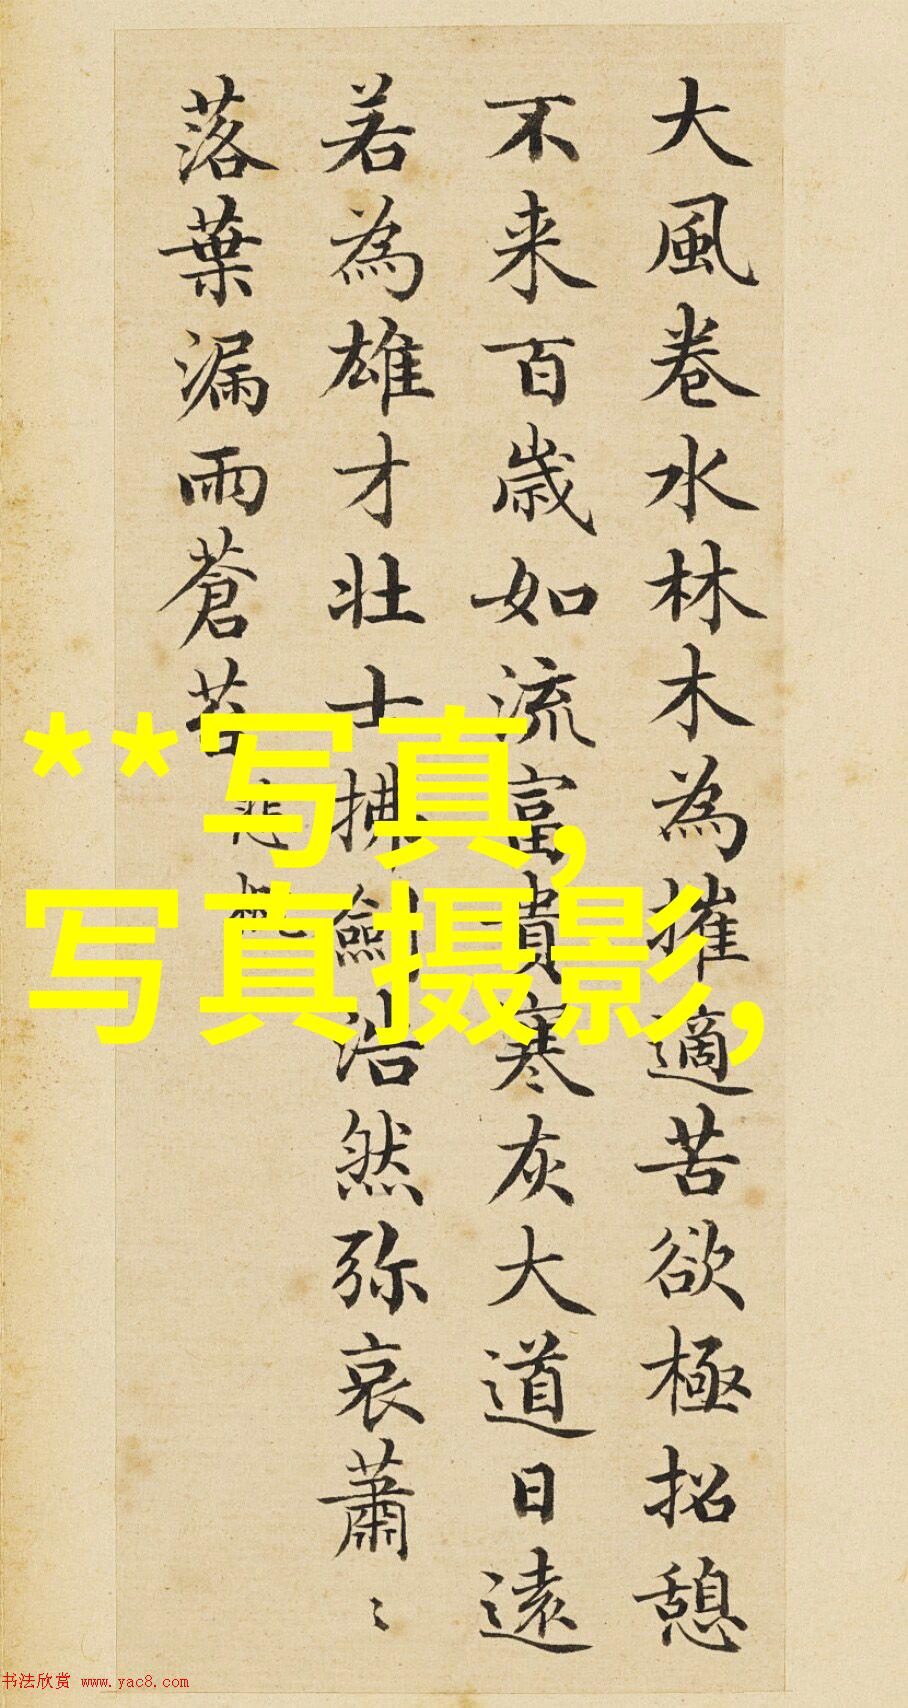 大風卷水林木為摧適苦欲極招憩
不来百歳如流富貴寒灰大道日遠
若為雄才壯士拂劍浩然弥哀蕭〻
落葉漏雨蒼苔
悲慨
**写真,
写真摄影,
书法欣赏 www.yac8.com